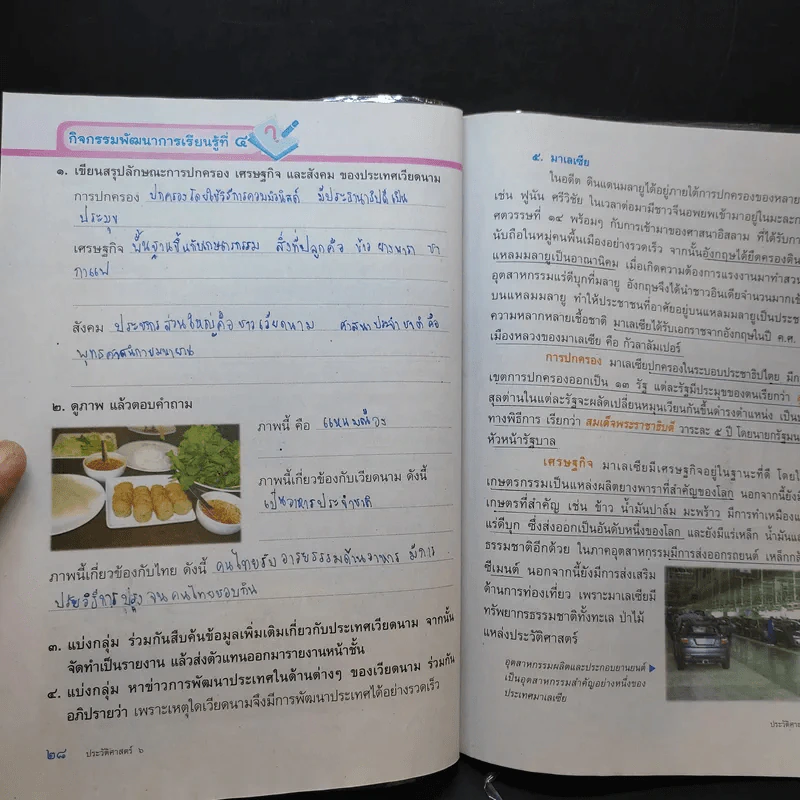 กิจกรรมพัฒนาการเรียนรู้ที่ ๔
๑. เขียนสรุปลักษณะการปกครอง เศรษฐกิจ และสังคม ของประเทศเวียดนาม
การปกครอง ปกครองโดยใช้วิธีการคอมมิวนิสต์ มีประธานาธิบดีเป็น
ประมุข
เศรษฐกิจ พื้นฐานขึ้นกับเกษตรกรรม สิ่งที่ปลูกคือ ข้าว ยางพารา ชา
กาแฟ
สังคม ประชากรส่วนใหญ่คือชาวเวียดนาม ศาสนาประจำชาติ คือ
พุทธศาสนานิกายมหายาน
๒. ดูภาพ แล้วตอบคำถาม
ภาพนี้ คือ แหนมเนือง
ภาพนี้เกี่ยวข้องกับเวียดนาม ดังนี้
เป็นอาหารประจำชาติ
ภาพนี้เกี่ยวข้องกับไทย ดังนี้ คนไทยรับอารยธรรมด้านอาหาร มีการ
ปรุง จนคนไทยชอบกิน
๓. แบ่งกลุ่ม ร่วมกันสืบค้นข้อมูลเพิ่มเติมเกี่ยวกับประเทศเวียดนาม จากนั้น
จัดทำเป็นรายงาน แล้วส่งตัวแทนออกมารายงานหน้าชั้น
๔. แบ่งกลุ่ม หาข่าวการพัฒนาประเทศในด้านต่างๆ ของเวียดนาม ร่วมกัน
อภิปรายว่า เพราะเหตุใดเวียดนามจึงมีการพัฒนาประเทศได้อย่างรวดเร็ว
๒๘ ประวัติศาสตร์ ๖
๕. มาเลเซีย
ในอดีต ดินแดนมลายูได้อยู่ภายใต้การปกครองของหลาย
เช่น ฟูนัน ศรีวิชัย ในเวลาต่อมามีชาวจีนอพยพเข้ามาอยู่ในมะละกา
ศตวรรษที่ ๑๔ พร้อมๆ กับการเข้ามาของศาสนาอิสลาม ที่ได้รับกา
นับถือในหมู่คนพื้นเมืองอย่างรวดเร็ว จากนั้นอังกฤษได้ยึดครองดิน
แหลมมลายูเป็นอาณานิคม เมื่อเกิดความต้องการแรงงานมาทำสวน
อุตสาหกรรมแร่ดีบุกที่มลายู อังกฤษจึงได้นำชาวอินเดียจำนวนมากเข้า
บนแหลมมลายู ทำให้ประชาชนที่อาศัยอยู่บนแหลมมลายูเป็นประชา
ความหลากหลายเชื้อชาติ มาเลเซียได้รับเอกราชจากอังกฤษในปี ค.ศ.
เมืองหลวงของมาเลเซีย คือ กัวลาลัมเปอร์
การปกครอง มาเลเซียปกครองในระบอบประชาธิปไตย มีก
เขตการปกครองออกเป็น ๑๓ รัฐ แต่ละรัฐมีประมุขของตนเรียกว่า
สุลต่านในแต่ละรัฐจะผลัดเปลี่ยนหมุนเวียนกันขึ้นดำรงตำแหน่ง เป็น
ทางพิธีการ เรียกว่า สมเด็จพระราชาธิบดี วาระละ ๕ ปี โดยนายกรัฐมน
หัวหน้ารัฐบาล
เศรษฐกิจ มาเลเซียมีเศรษฐกิจอยู่ในฐานะที่ดี โดยใ
เกษตรกรรมเป็นแหล่งผลิตยางพาราที่สำคัญของโลก นอกจากนี้ยังมี
เกษตรที่สำคัญ เช่น ข้าว น้ำมันปาล์ม มะพร้าว มีการทำเหมืองแ
แร่ดีบุก ซึ่งส่งออกเป็นอันดับหนึ่งของโลก และยังมีแร่เหล็ก น้ำมันแ
ธรรมชาติอีกด้วย ในภาคอุตสาหกรรมมีการส่งออกรถยนต์ เหล็กกล้
ซีเมนต์ นอกจากนี้ยังมีการส่งเสริม
ด้านการท่องเที่ยว เพราะมาเลเซียมี
ทรัพยากรธรรมชาติทั้งทะเล ป่าไม้
แหล่งประวัติศาสตร์
อุตสาหกรรมผลิตและประกอบยานยนต์
เป็นอุตสาหกรรมสำคัญอย่างหนึ่งของ
ประเทศมาเลเซีย
ประวัติศา